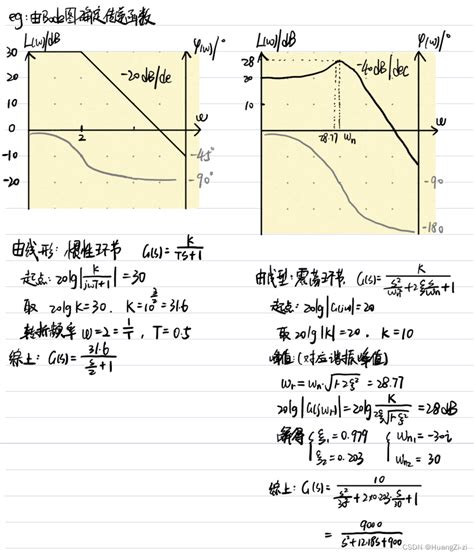 eg:由Bode图确定传递函数
L(ω)/dB
φ(ω)/°
30
20
10
0
-10
-20
-20dB/de
2
ω
-45°
-90°
L(ω)/dB
φ(ω)/°
28
20
10
-40dB/dec
28.77 ωn
ω
-90
-180
由线形: 惯性环节 G(s)=K/(Ts+1)
起点: 20lg|K/(jωT+1)|=30
取 20lgK=30. K=10^(3/2)=31.6
转折频率 ω=2=1/T, T=0.5
综上: G(s)=31.6/(s/2+1)
由线型: 震荡环节, G(s)=K/(s²/ωn²+2ξs/ωn+1)
起点: 20lg|G(jω)|=20
取 20lg|K|=20. K=10
峰值: (对应谐振峰值)
ωr=ωn·√(1-2ξ²)=28.77
20lg|G(jωr)|=20lg K/(2ξ√(1-ξ²))=28dB
解得 {ξ1=0.979 {ωn1=-30i
ξ2=0.203 ωn2=30
综上: G(s)=10/(s²/30²+2×0.203·s/30+1)
=9000/(s²+12.18s+900)
CSDN @HuangZi-zi